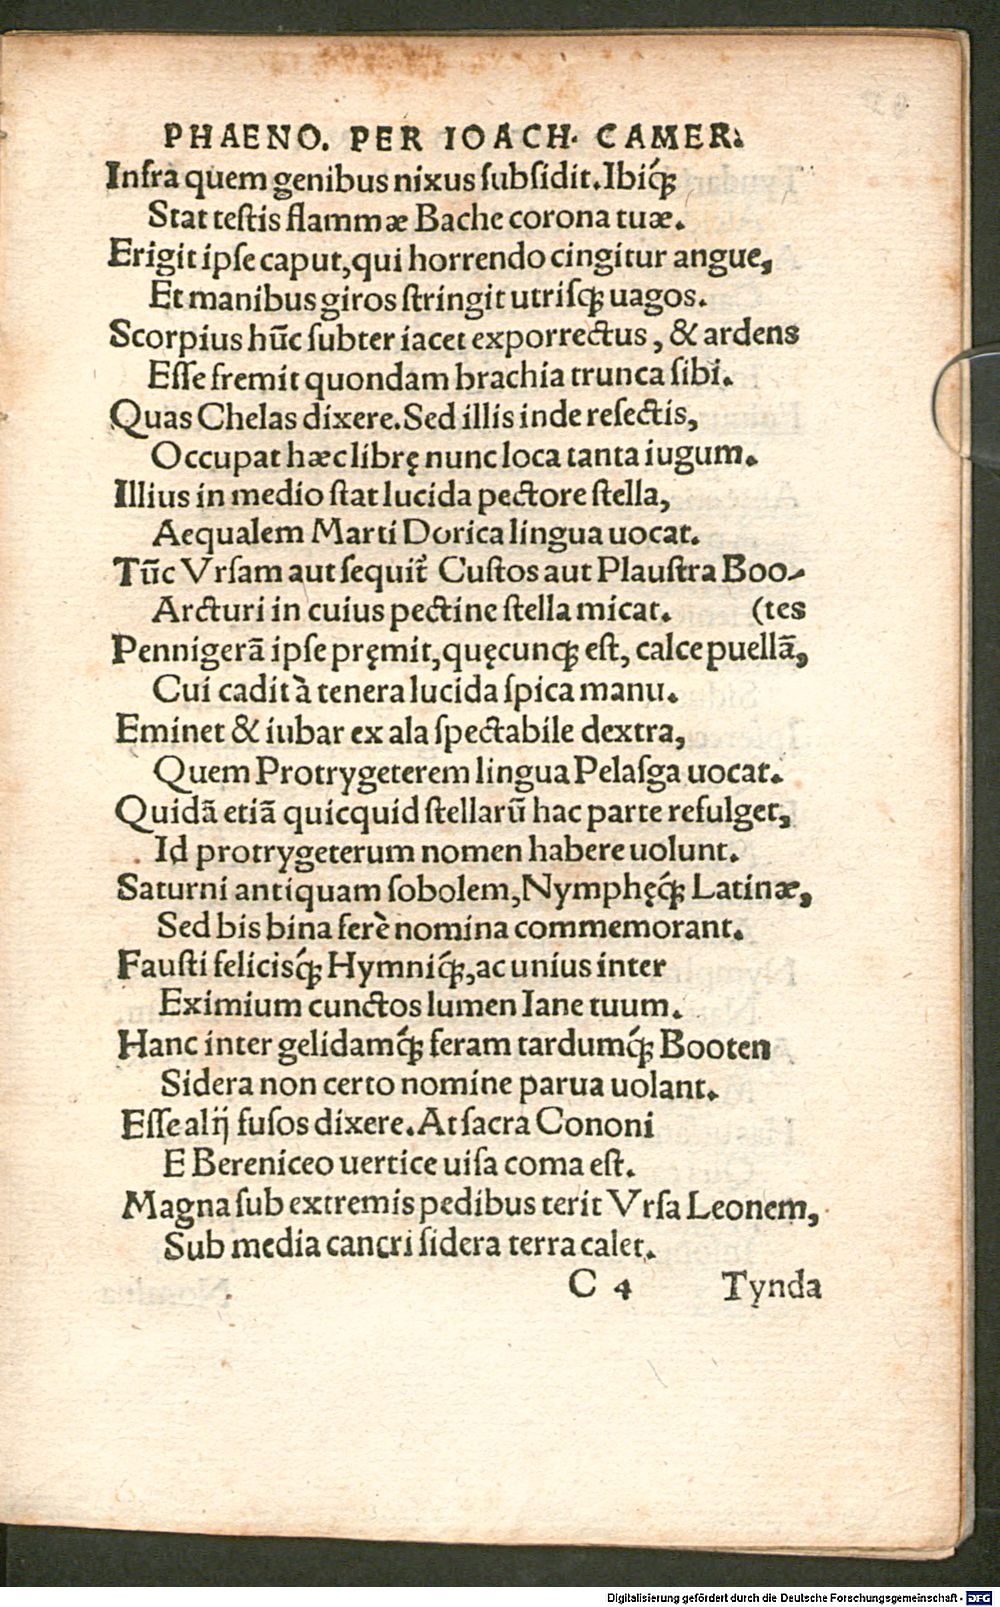 PHAENO. PER IOACH. CAMER.
Infra quem genibus nixus ſubſidit. Ibiq́ꝫ
Stat teſtis flammæ Bache corona tuæ.
Erigit ipſe caput, qui horrendo cingitur angue,
Et manibus giros ſtringit utriſqꝫ uagos.
Scorpius hũc ſubter iacet exporrectus, & ardens
Eſſe fremit quondam brachia trunca ſibi.
Quas Chelas dixere. Sed illis inde reſectis,
Occupat hæc librę nunc loca tanta iugum.
Illius in medio ſtat lucida pectore ſtella,
Aequalem Marti Dorica lingua uocat.
Tũc Vrſam aut ſequit᷑ Cuſtos aut Plauſtra Boo-
Arcturi in cuius pectine ſtella micat. (tes
Pennigerã ipſe pręmit, quęcunqꝫ eſt, calce puellã,
Cui cadit à tenera lucida ſpica manu.
Eminet & iubar ex ala ſpectabile dextra,
Quem Protrygeterem lingua Pelaſga uocat.
Quidã etiã quicquid ſtellarũ hac parte refulget,
Id protrygeterum nomen habere uolunt.
Saturni antiquam ſobolem, Nymphęq́ꝫ Latinæ,
Sed bis bina ferè nomina commemorant.
Fauſti felicisq́ꝫ Hymniq́ꝫ, ac unius inter
Eximium cunctos lumen Iane tuum.
Hanc inter gelidamq́ꝫ feram tardumq́ꝫ Booten
Sidera non certo nomine parua uolant.
Eſſe alij fuſos dixere. At ſacra Cononi
E Bereniceo uertice uiſa coma eſt.
Magna ſub extremis pedibus terit Vrſa Leonem,
Sub media cancri ſidera terra calet.
C 4 Tynda
Digitalisierung gefördert durch die Deutsche Forschungsgemeinschaft - DFG